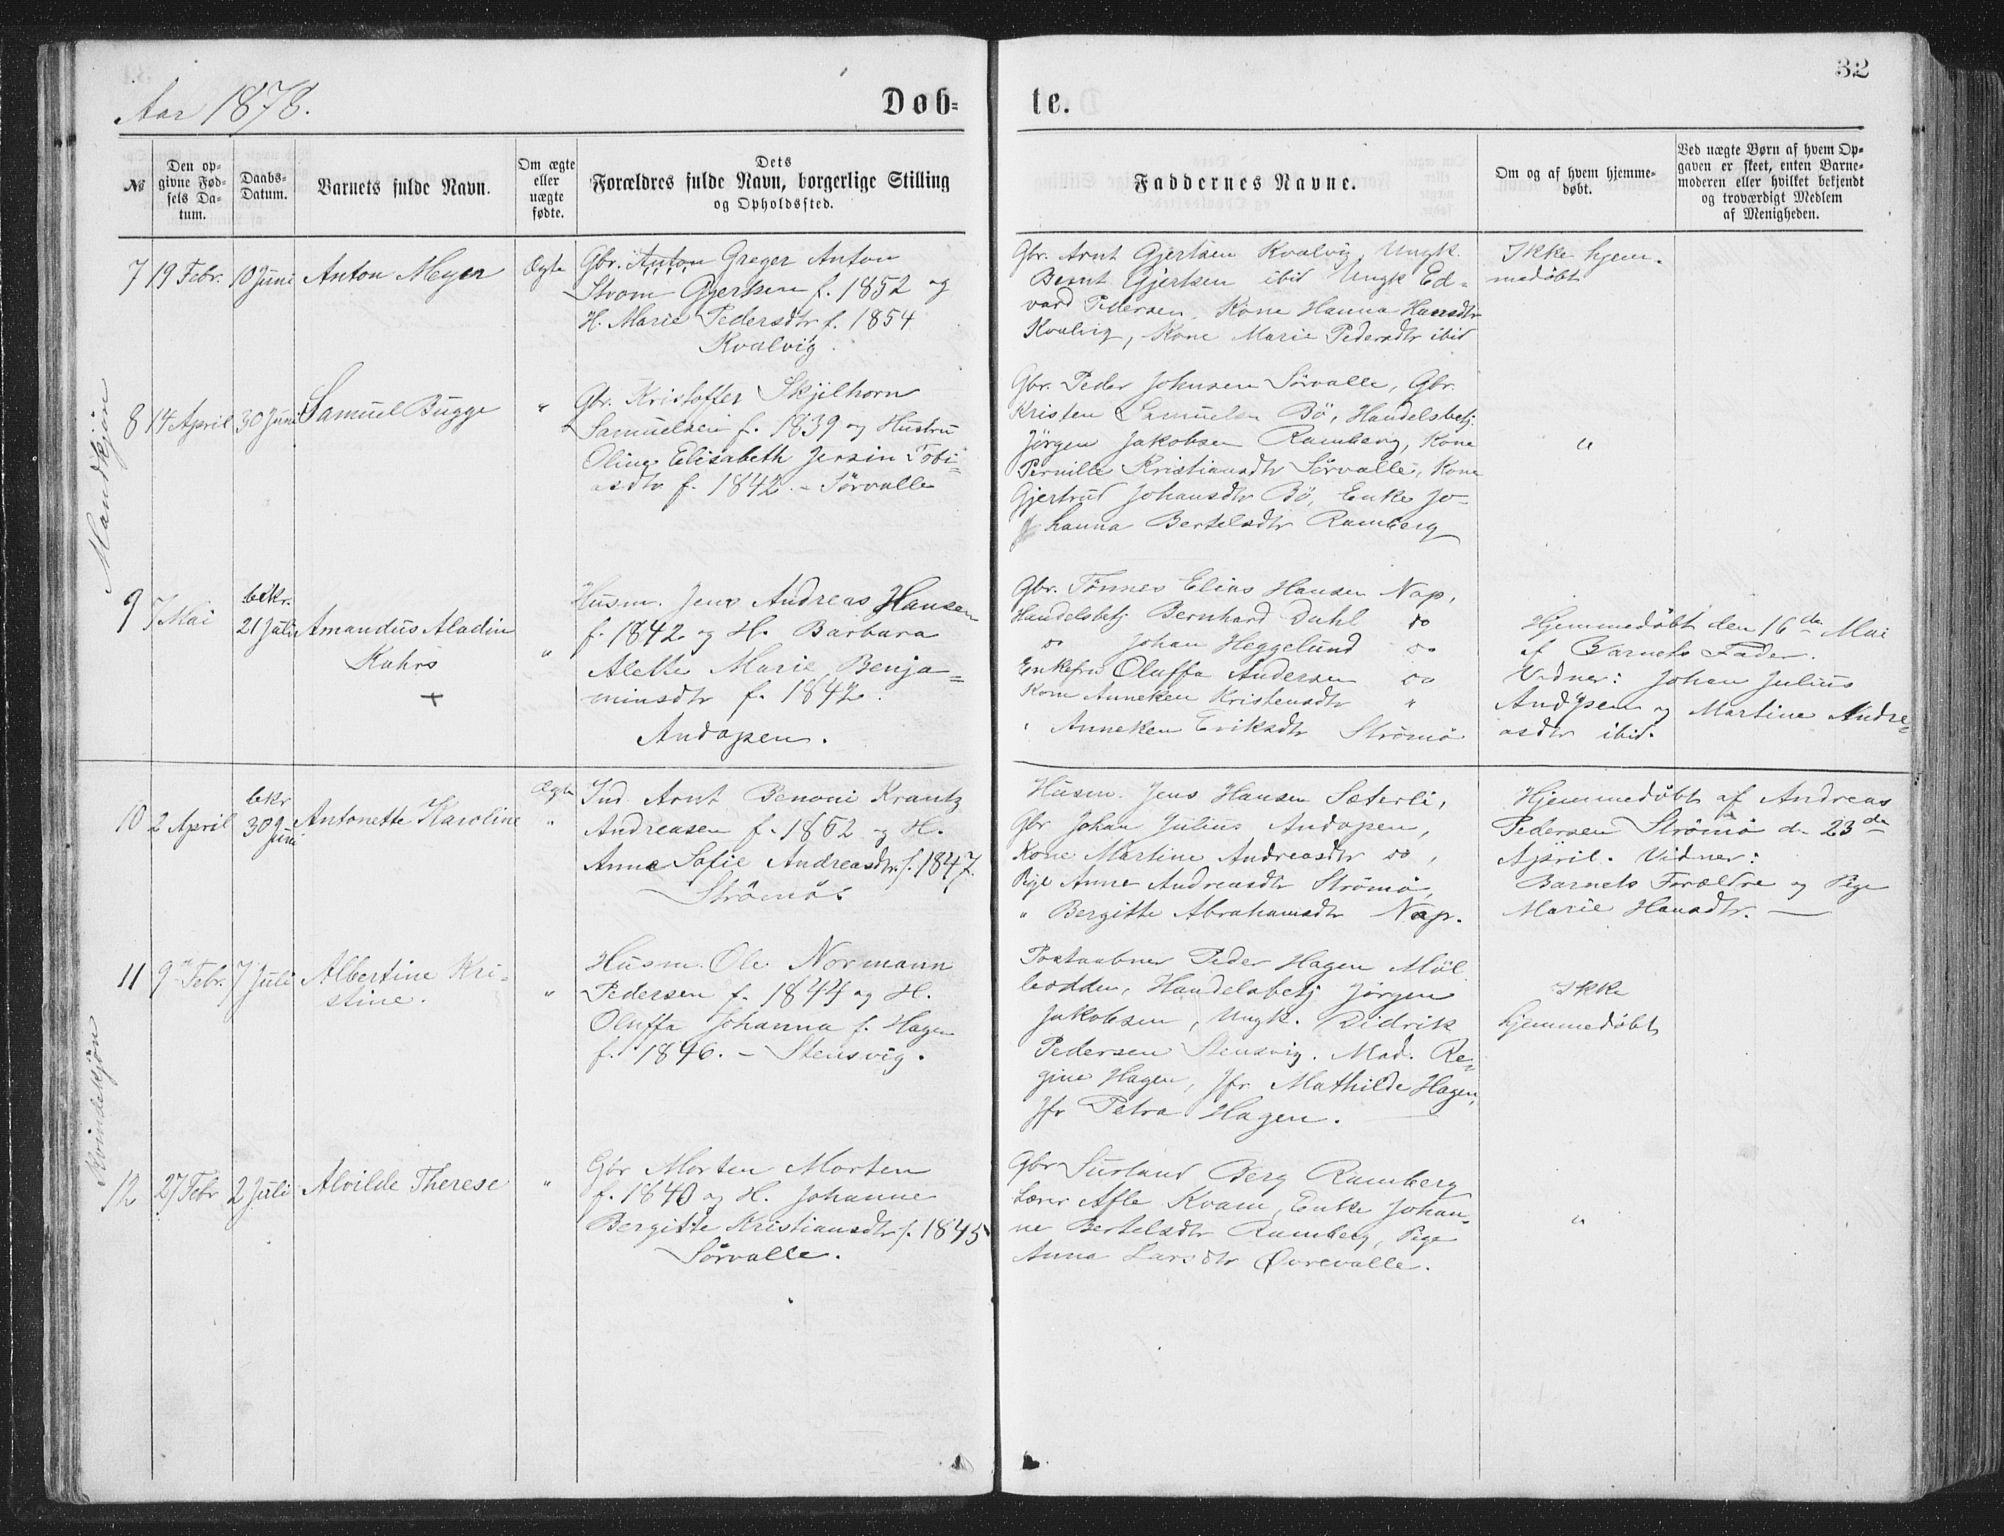 Aar 1878.
Døb-
te.
32
№
Den op-
givne Fød-
sels Da-
tum.
Daabs-
Datum.
Barnets fulde Navn.
Om ægte
eller
uægte
fødte.
Dets
Forældres fulde Navn, borgerlige Stilling
og Opholdssted.
Faddernes Navne.
Om og af hvem hjemme-
døbt.
Ved uægte Børn af hvem Op-
gaven er skeet, enten Barne-
moderen eller hvilket bekjendt
og troværdigt Medlem
af Menigheden.
Mandkjøn
7 19 Febr. 10 Juni Anton Meyer Ægte
Gbr. Anton Greger Anton
Strøm Gjertsen f. 1852 og
H. Marie Pedersdtr f. 1854
Kvalvig.
Gbr. Arnt Gjertsen Kvalvig, Ungk.
Bernt Gjertsen ibid Ungk Ed-
vard Pedersen, Kone Hanna Hansdtr
Kvalvig, Kone Marie Pedersdtr ibid
Ikke hjem-
medøbt
8 14 April 30 Juni Samuel Bugge "
Gbr. Kristoffer Skjelhorn
Samuelsen f. 1839 og Hustru
Oline Elisabeth Jersin Tobi-
asdtr f. 1842. - Sørvalle
Gbr. Peder Johnsen Sørvalle, Gbr.
Kristen Samuelsen Bö, Handelsbetj.
Jørgen Jakobsen Ramberg, Kone
Pernille Kristiansdtr Sørvalle, Kone
Gjertrud Johansdtr Bö, Enke Jo-
hanna Bertelsdtr Ramberg
"
9 7 Mai bekr.
21 Juli Amandus Aladin
Kahrs "
+
Husm. Jens Andreas Hansen
f. 1842 og H. Barbara
Alette Marie Benja-
minsdtr f. 1842.
Andopen.
Gbr. Tønnes Elias Hansen Nap,
Handelsbetj Bernhard Dahl do
do Johan Heggelund do
Enkefru Oluffa Andersen do
Kone Anneken Kristensdtr "
" Anneken Eriksdtr Strömö
Hjemmedøbt den 16de Mai
af Barnets Fader.
Vidner: Johan Julius
Andopen og Martine Andre-
asdtr ibid.
Kvindekjøn
10 2 April bekr
30 Juni Antonette Karoline Ægte
"
Ind Arnt Benoni Krantz
Andreasen f. 1852 og H.
Anna Sofie Andreasdtr. f. 1847.
Strömö.
Husm. Jens Hansen Sæterli,
Gbr Johan Julius Andopen,
Kone Martine Andreasdtr do,
Pige Anne Andreasdtr Strömö,
" Bergitte Abrahamsdtr Nap.
Hjemmedøbt af Andreas
Pedersen Strömö d. 23de
April. Vidner:
Barnets Forældre og Pige
Marie Hansdtr. —
11 9 Febr. 7 Juli Albertine Kri-
stine. "
Husm. Ole Normann
Pedersen f. 1844 og H.
Oluffa Johanna f. Hagen
f. 1846. - Stensvig.
Postaabner Peder Hagen Möl
lodden, Handelsbetj Jørgen
Jakobsen, Ungk. Didrik
Pedersen Stensvig. Mad. Re-
gine Hagen, Jfr Mathilde Hagen,
Jfr Petra Hagen. —
Ikke
hjemmedøbt
12 27 Febr 2 Juli Alvilde Therese "
Gbr Morten Morten
f. 1840 og H. Johanne
Bergitte Kristiansdtr f. 1845
Sørvalle.
Gbr Surland Berg Ramberg
Lærer Afle Kvam, Enke Johan-
ne Bertelsdtr Ramberg, Pige
Anna Larsdtr Øvrevalle.
"